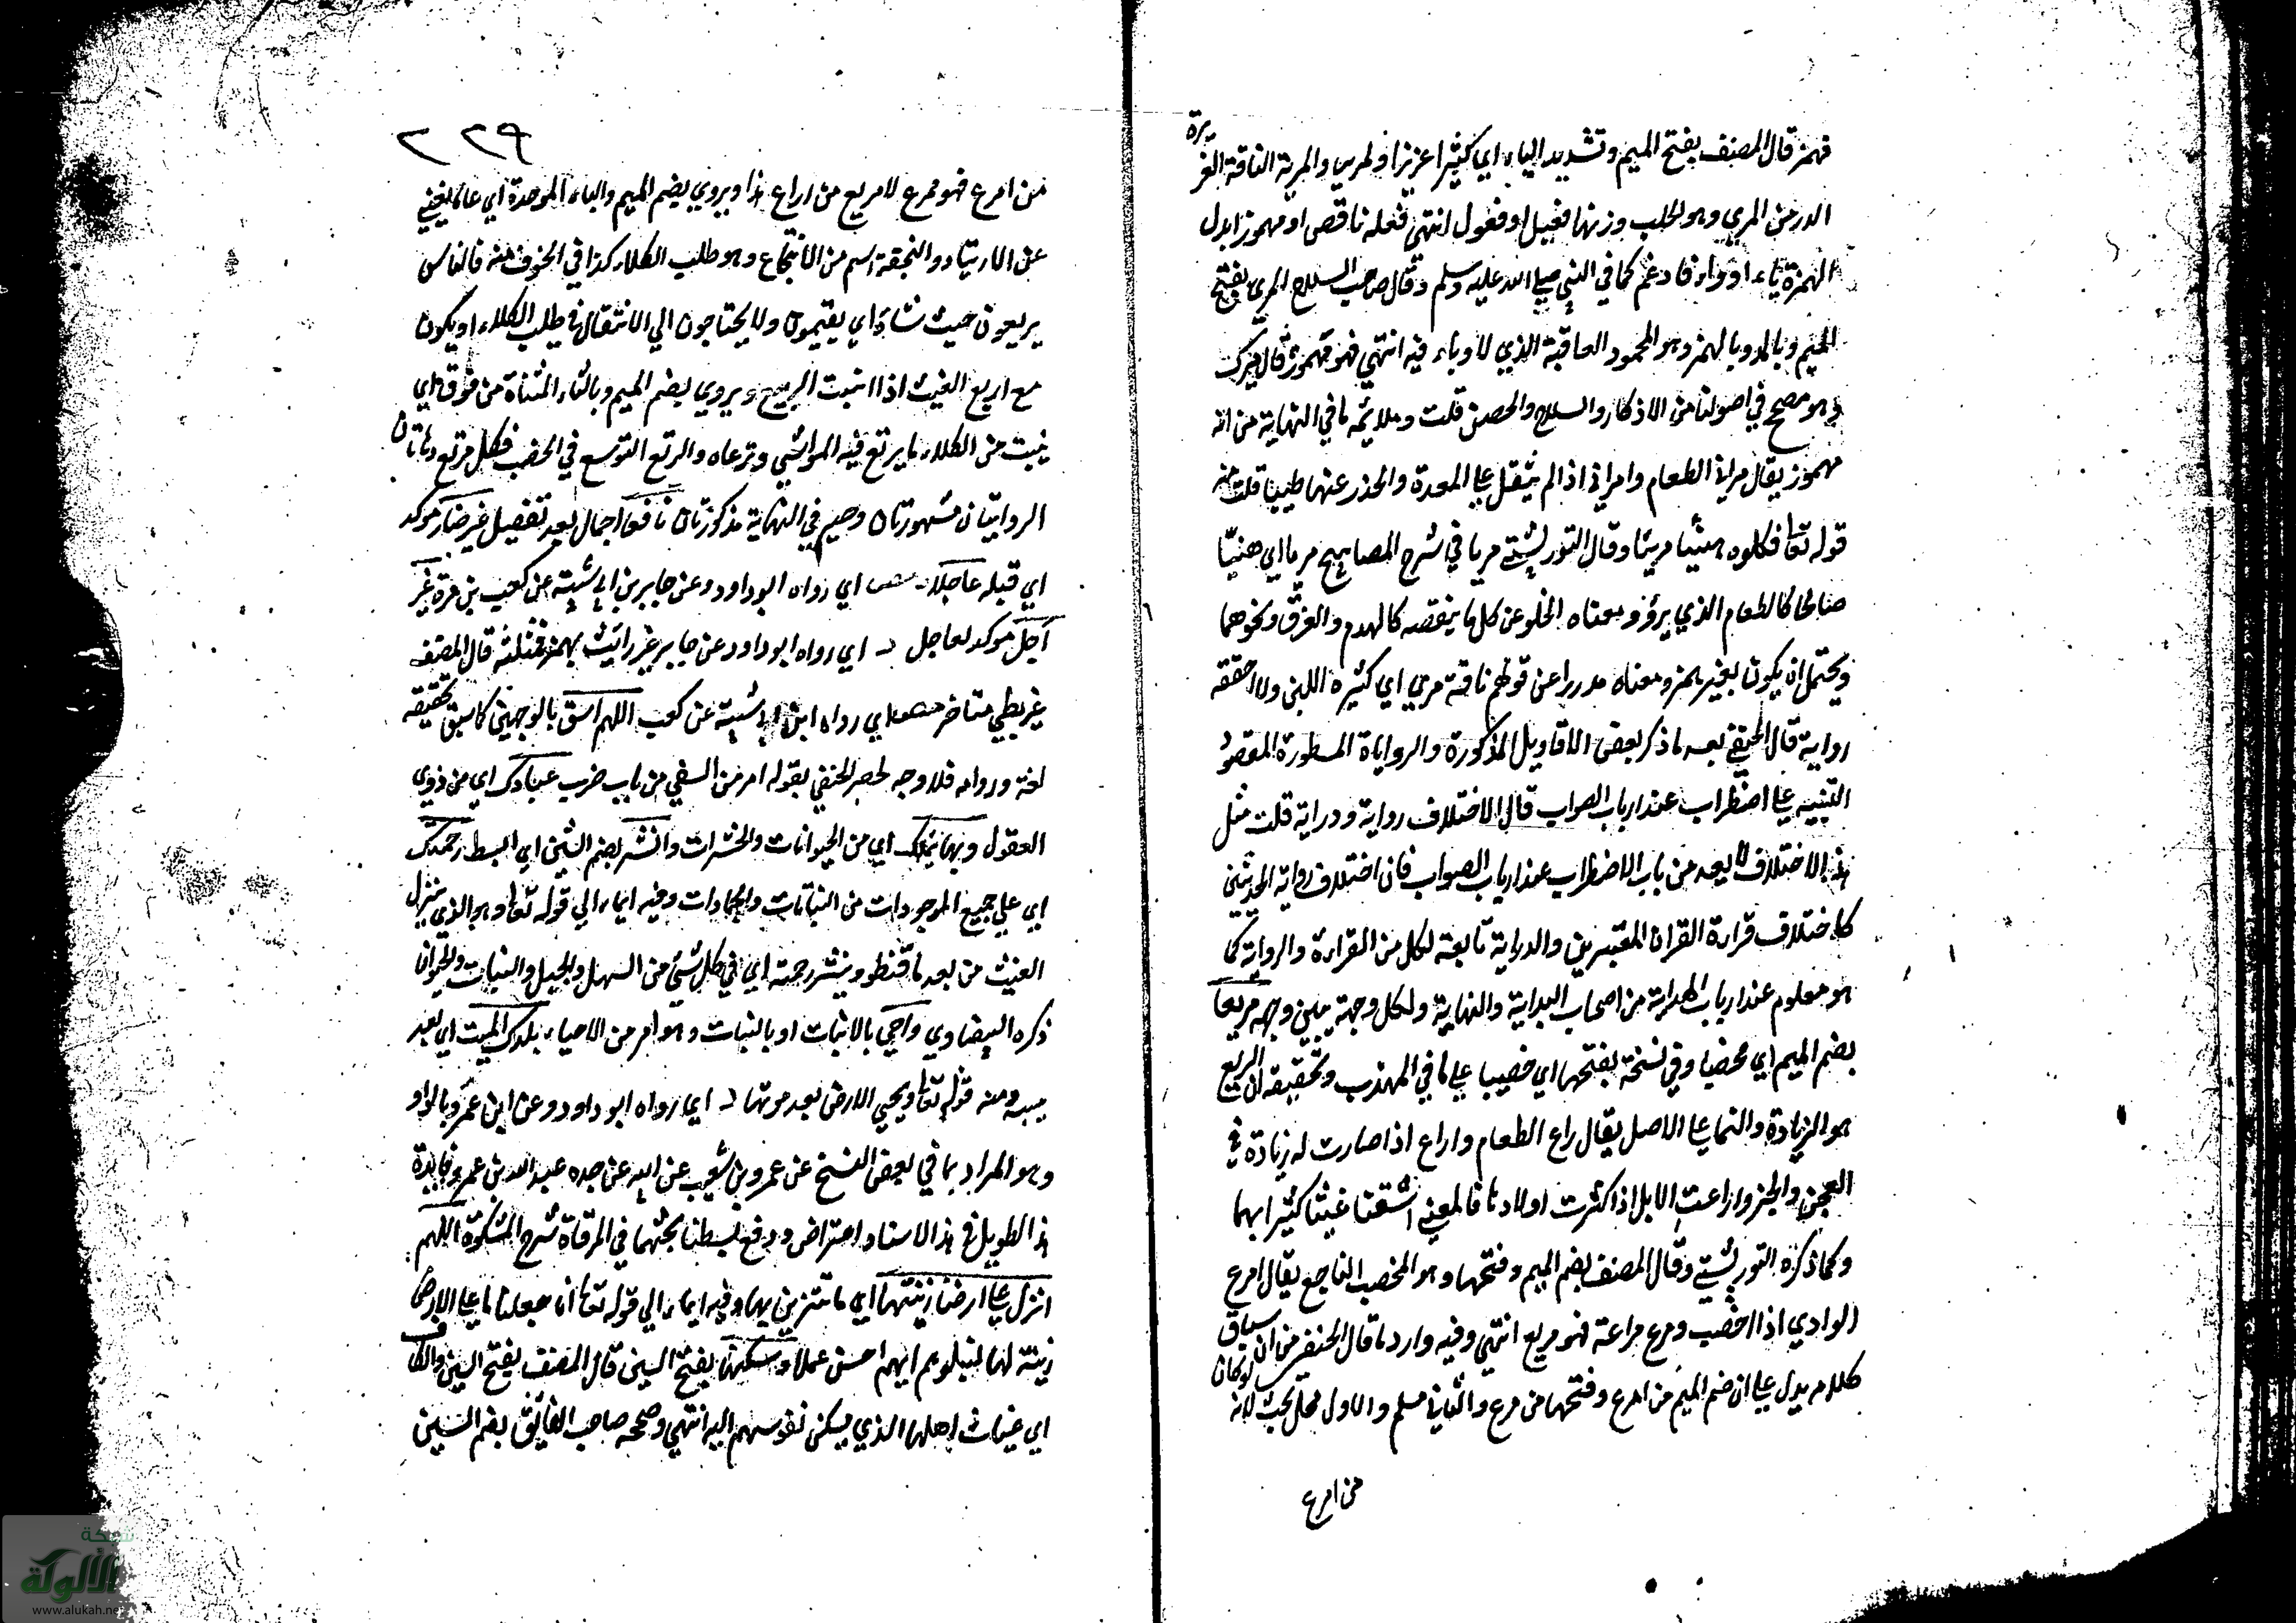 فهمز قال المصنف بفتح الميم وتشديد الياء اي كثيرا عزيزا والمرية الناقة الغزيرة
الدر من المري وهو الحلب وزنها فعيل او فعول انتهى فعله ناقص او مهموز ابدل
الهمزة ياء او واو فادغم كما في النبي صلى الله عليه وسلم وقال صاحب السلاح المري بفتح
الميم وبالمد وبالهمز وهو المحمود العاقبة الذي لا وباء فيه انتهى فهو مهموز قال ميرك
وهو مصحح في اصولنا من الاذكار والسلاح والحصن قلت وملائمه ما في النهاية من انه
مهموز يقال مراني الطعام وامراني اذا لم يثقل على المعدة وانحدر عنها طيبا قلت منه
قوله تعالى فكلوه هنيئا مريئا وقال التوربشتي مريا في شرح المصابيح مريا اي هنيئا
صالحا كالطعام الذي يرؤ ومعناه الخلو عن كل ما ينغصه كالهدم والغرق ونحوهما
ويحتمل ان يكون بغير همز ومعناه مدرارا عن قولهم ناقة مري اي كثيرة اللبن ولا احققه
رواية قال الحنفي بعد ما ذكر بعض الاقاويل المذكورة والروايات المسطورة المقصود
التنبيه على اضطراب عند ارباب الصواب قال الاختلاف رواية ودراية قلت مثل
هذا الاختلاف لا يعد من باب الاضطراب عند ارباب الصواب فان اختلاف رواية المحدثين
كاختلاف قراءة القران المعتبرين والدراية تابعة لكل من القراءة والرواية كما
هو معلوم عند ارباب الهداية من اصحاب البداية والنهاية ولكل وجهة يبين وجهه مريعا
بضم الميم اي مخصبا وفي نسخة بفتحها اي خصيبا على ما في المهذب وتحقيقه ان الريع
هو الزيادة والنما على الاصل يقال راع الطعام واراع اذا صارت له زيادة في
العجن والخبز واراعت الابل اذا كثرت اولادها فالمعنى اسقنا غيثا كثيرا بهما
وكما ذكره التوربشتي وقال المصنف بضم الميم وفتحها وهو المخصب الناجع يقال امرع
الوادي اذا اخصب ومرع مراعة فهو مريع انتهى وفيه وارد ما قال الحنفي من ان سياق
كلامه يدل على ان ضم الميم من امرع وفتحها من مرع والثاني مسلم والاول محل بحث لانه لو كان
من امرع
٢٢٩
من امرع فهو ممرع لا مريع من اراع هذا ويروى بضم الميم والباء الموحدة اي عاما يغني
عن الارتياد والنجعة اسم من الانتجاع وهو طلب الكلاء كذا في فالناس
يربعون حيث شاؤا اي يقيمون ولا يحتاجون الى الانتقال في طلب الكلاء او يكون
مع اربع الغيث اذا انبت الربيع ويروى بضم الميم وبالتاء المثناة من فوق اي
ينبت من الكلاء ما يرتع فيه المواشي وترعاه والرتع التوسع في الخصب فكل مرتع وهاتان
الروايتان مشهورتان وهما في النهاية مذكورتان نافعا اجمال بعد تفصيل غير ضار موكد
اي قبله عاجلا مص اي رواه ابو داود وعن جابر بن ابي شيبة عن كعب بن مرة غير
آجل موكد لعاجل د اي رواه ابو داود عن جابر غير رايث بهمز فمثلثة قال المصنف
غير بطي متاخر مص اي رواه ابن ابي شيبة عن كعب اللهم اسق بالوجهين كما سبق تحقيقه
لغة ورواية فلا وجه لحصر الحنفي بقوله امر من السقي من باب ضرب عبادك اي من ذوي
العقول وبهائمك اي من الحيوانات والحشرات وانشر بضم الشين اي ابسط رحمتك
اي على جميع الموجودات من النباتات والجمادات وفيه ايماء الى قوله تعالى وهو الذي ينزل
الغيث من بعد ما قنطوا وينشر رحمته اي في كل شيئ من السهل والجبل والنبات والحيوان
ذكره البيضاوي واحي بالانبات او بالنبات وهو امر من الاحياء بلدك الميت اي بعد
يبسه ومنه قوله تعالى ويحيي الارض بعد موتها د اي رواه ابو داود وعن ابن عمرو بالواو
وهو المراد بما في بعض النسخ عن عمرو بن شعيب عن ابيه عن جده عبد الله بن عمرو وفايدة
هذا الطويل في هذا الاسناد اعتراض ودفع بسطنا بحثهما في المرقاة شرح المشكوة اللهم
انزل على ارضنا زينتها اي ما تتزين بها وفيه ايماء الى قوله تعالى انا جعلنا ما على الارض
زينة لها لنبلوهم ايهم احسن عملا وسكنها بفتح السين قال المصنف بفتح السين والكاف
اي غياث اهلها الذي يسكن نفوسهم اليه انتهى وصححه صاحب الفائق بضم السين
شبكة
الألوكة
www.alukah.net